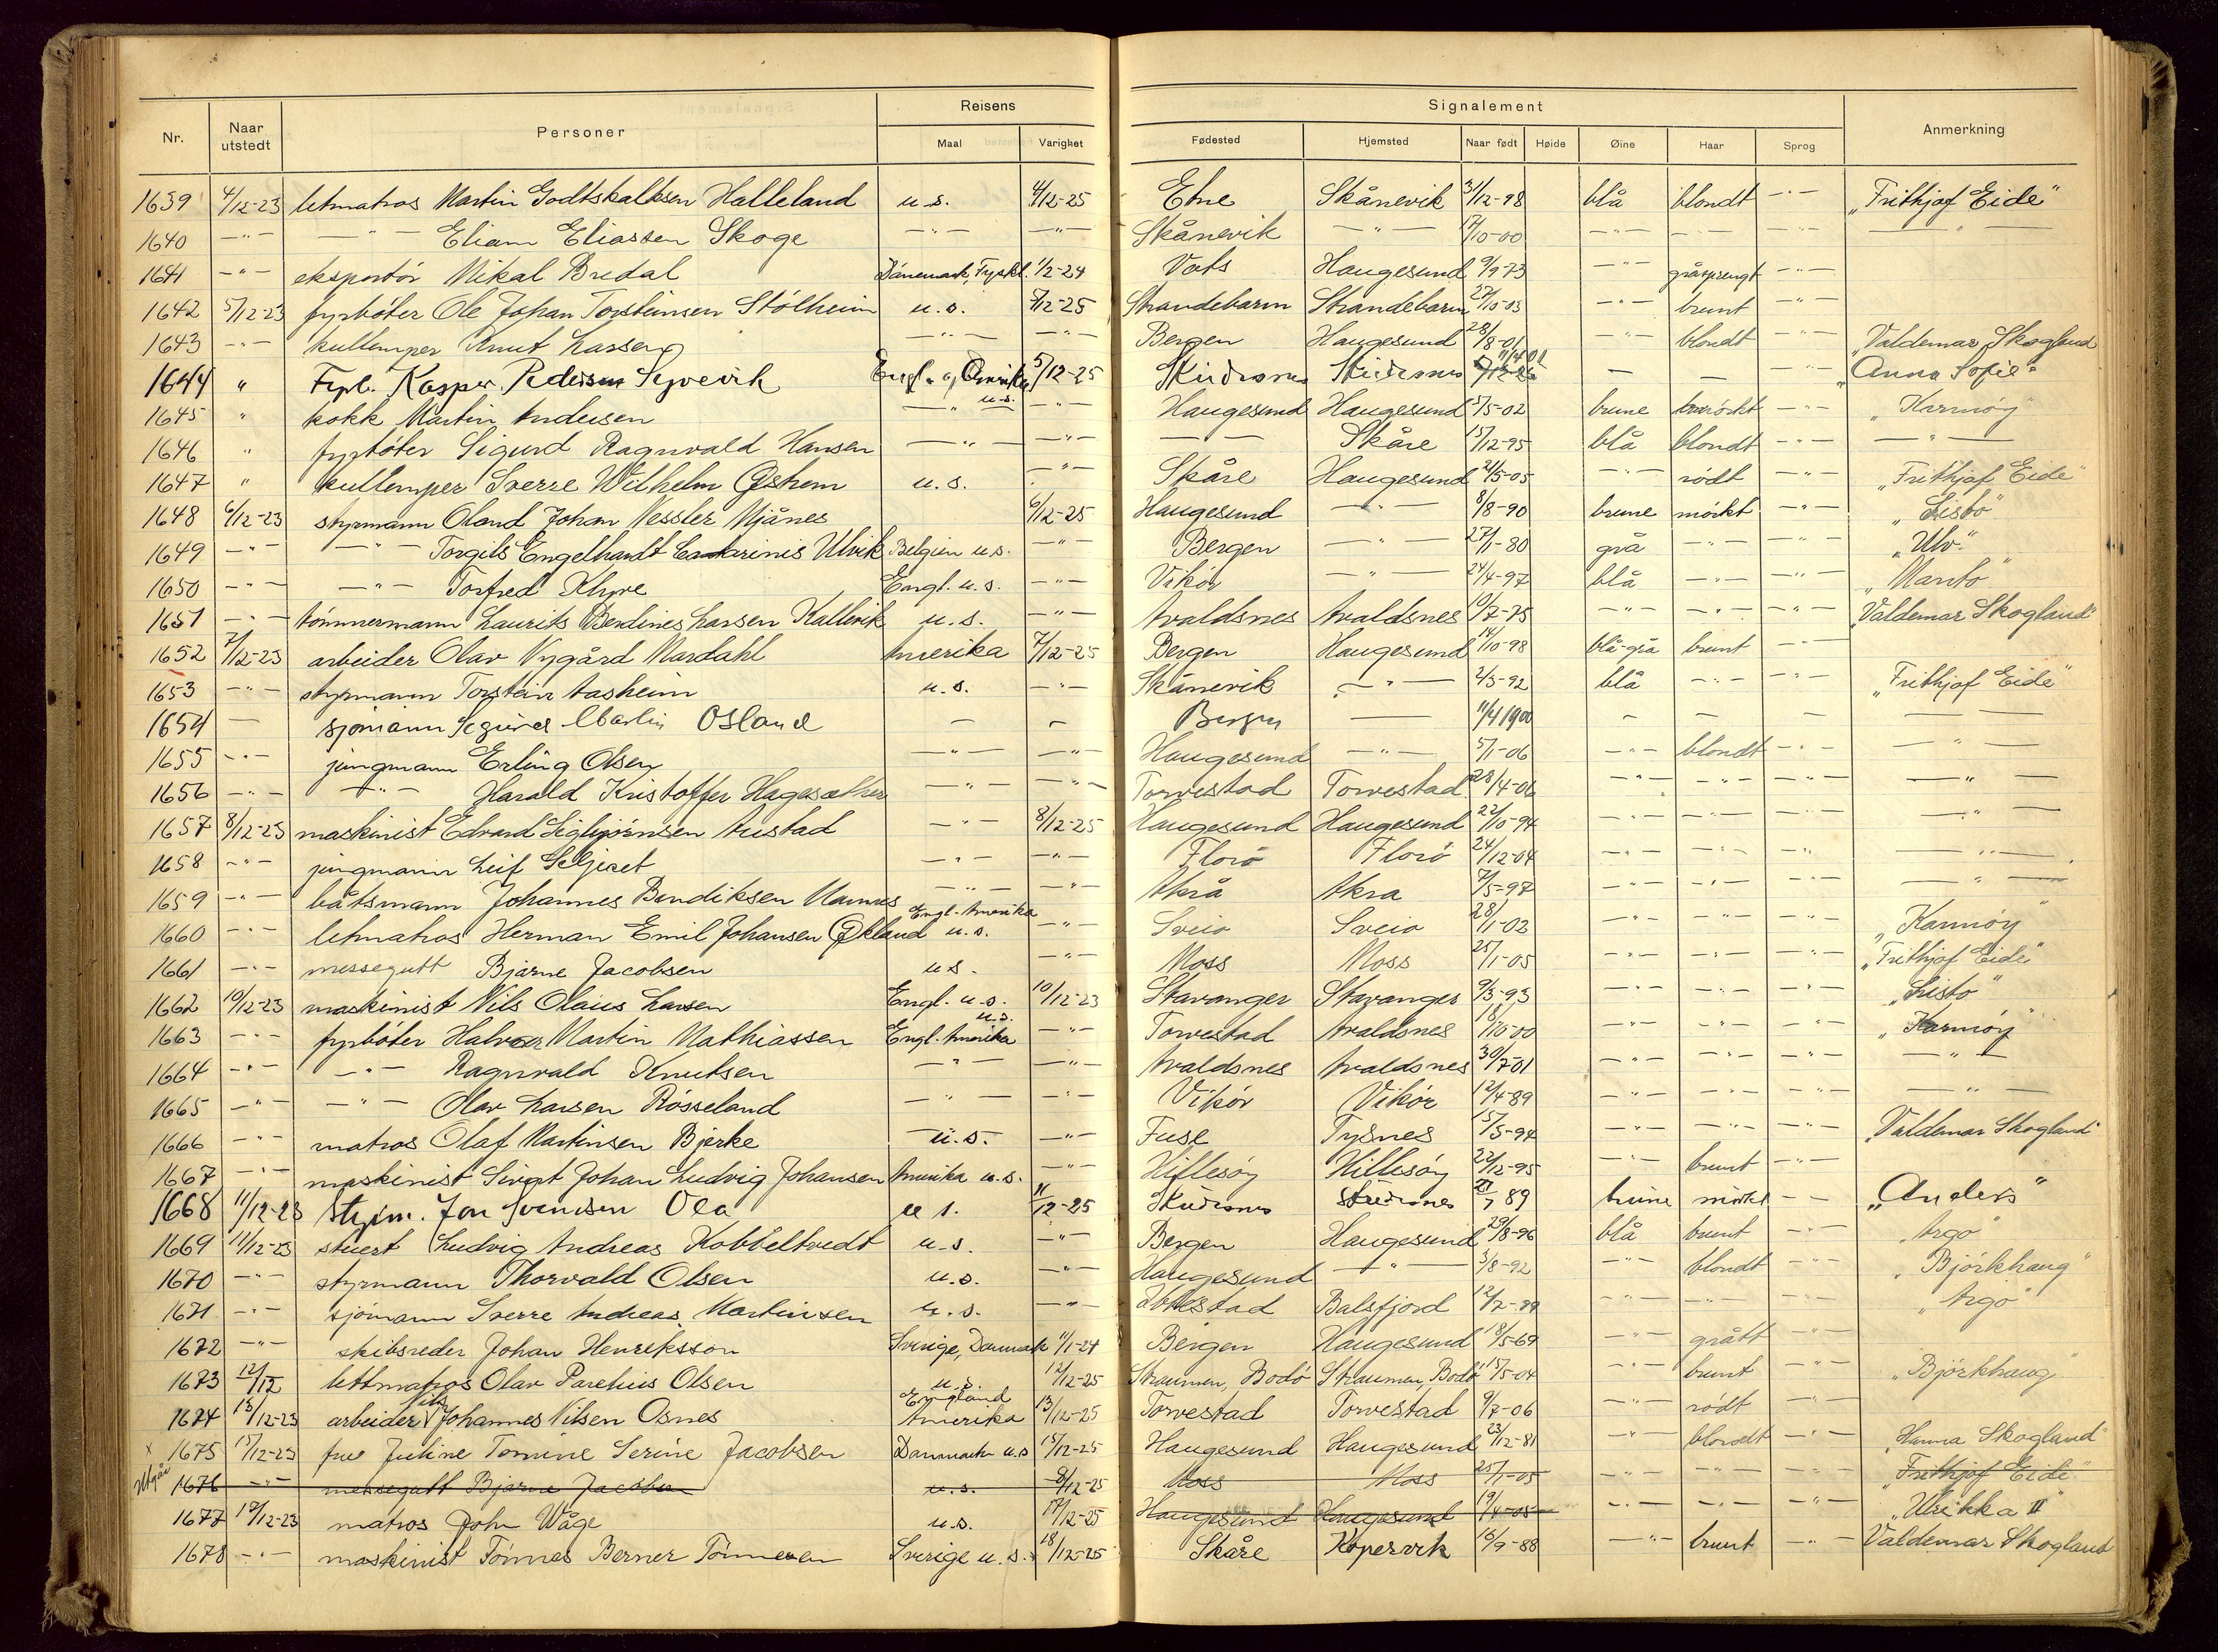 Nr. Naar utstedt Personer Reisens Maal Varighet Signalement Fødested Hjemsted Naar født Høide Øine Haar Sprog Anmerkning
1639 4/12-23 letmatros Martin Godtskalksen Halleland u.s. 4/12-25 Etne Skånevik 31/12-98 blå blondt -"- "Frithjof Eide"
1640 -"- -"- Eliam Eliassen Skoge -"- -"- Skånevik -"- 17/10-00 -"- -"- -"- -"-
1641 -"- eksportör Mikal Bredal Dänemark, Tyskl. 1/2-24 Vats Haugesund 9/9-73 -"- gråsprengt -"-
1642 5/12-23 fyrböter Ole Johan Torsteinsen Stölheim u.s. 5/12-25 Strandebarm Strandebarm 27/10-03 -"- brunt -"-
1643 -"- kullemper Knut Lassen -"- -"- Bergen Haugesund 28/8-01 -"- blondt -"- "Valdemar Skogland
1644 " Fyrb. Kasper Pedersen Syrevik Engl. og Amerika 5/12-25 Skudesnes Skudesnes 11/4 01 — — — "Anna Sofie"
1645 " kokk Martin Andersen -"- u.s. -"- Haugesund Haugesund 5/5-02 brune -"- "Karmöy"
1646 " fyrböter Sigurd Ragnvald Hansen -"- -"- — — Skåre 15/12-95 blå blondt -"- -"-
1647 " kullemper Sverre Wilhelm Østrem u.s. -"- Skåre Haugesund 21/5-05 -"- rödt -"- "Frithjof Eide"
1648 6/12-23 styrmann Oland Johan Nessler Mjånes 6/12-25 Haugesund -"- 8/8-90 brune mörkt -"- "Sisto"
1649 -"- -"- Torgils Engelhardt Catarinis Ulvik Belgien u.s. -"- Bergen -"- 27/1-80 grå -"- -"- "Ulv."
1650 -"- -"- Torfred Klyve Engl. u.s. -"- Vikör -"- 24/4-97 blå -"- -"- "Manto"
1651 -"- tömmermann Laurits Berdines Larsen Kallevik u.s. -"- Avaldsnes Avaldsnes 10/7-75 -"- -"- -"- "Valdemar Skogland"
1652 7/12-23 arbeider Olav Nygård Mardahl Amerika 7/12-25 Bergen Haugesund 14/10-98 blå-grå brunt -"-
1653 -"- styrmann Torstein Aasheim u.s. -"- Skånevik -"- 2/3-92 blå -"- -"- "Frithjof Eide"
1654 — sjömann Sigurd Martin Osland — — Bergen — 11/4 1900 — — — — —
1655 -"- jungmann Erling Olsen -"- -"- Haugesund -"- 5/1-06 -"- blondt -"- -"-
1656 -"- -"- Harald Kristoffer Hagesæther -"- -"- Torvestad Torvestad 28/4-06 -"- -"- -"- -"-
1657 8/12-23 maskinist Edvard Sigbjörnsen Austad -"- 8/12-25 Haugesund Haugesund 22/10-94 -"- -"- -"- -"-
1658 -"- jungmann Leif Seljeset -"- -"- Florö Florö 24/12-04 -"- -"- -"- -"-
1659 -"- båtsmann Johannes Bendiksen Mannes -"- -"- Akrå Akra 7/5-97 -"- -"- -"- -"-
1660 -"- letmatros Herman Emil Johansen Økland Engl.-Amerika u.s. -"- Sveio Sveio 28/1-02 -"- -"- -"- "Karmöy"
1661 -"- messegutt Bjarne Jacobsen u.s. -"- Moss Moss 25/1-05 -"- -"- -"- "Frithjof Eide"
1662 10/12-23 maskinist Nils Olaus Larsen Engl. u.s. 10/12-23 Stavanger Stavanger 9/3-93 -"- -"- -"- "Sisto"
1663 -"- fyrböter Halvor Martin Mathiassen Engl.-Amerika u.s. -"- Torvestad Avaldsnes 18/10-00 -"- -"- -"- "Karmöy"
1664 -"- -"- Ragnvald Knutsen -"- -"- Avaldsnes Avaldsnes 30/7-01 -"- -"- -"- -"-
1665 -"- -"- Olav Larsen Rösseland -"- -"- Vikör Vikör 12/4-89 -"- -"- -"- -"-
1666 -"- matros Olaf Martinsen Bjerke u.s. -"- Fuse Tysnes 15/5-94 -"- -"- -"- "Valdemar Skogland"
1667 -"- maskinist Sivert Johan Ludvig Johansen Amerika u.s. -"- Hillesöy Hillesöy 22/12-95 -"- brunt -"-
1668 11/12-23 Styrm. Jon Svendsen Olea u s. 11/12-25 Skudesnes Skudesnes 89 brune mörkt — "Anders"
1669 11/12-23 stuert Ludvig Andreas Kobbeltvedt u.s. -"- Bergen Haugesund 29/8-96 blå brunt -"- "Argo"
1670 -"- styrmann Thorvald Olsen u.s. -"- Haugesund -"- 3/8-92 -"- blondt -"- "Björkhaug"
1671 -"- sjömann Sverre Andreas Martinsen u.s. -"- Balsfjord -"- -"- -"- "Argo"
1672 -"- skibsreder Johan Henriksson Sverige, Danmark 11/1-24 Bergen Haugesund 18/5-69 -"- grått -"-
1673 12/12 lettmatros Olav Parelius Olsen u.s. 12/12-25 Straumen, Bodö Straumen, Bodö 15/5-04 -"- brunt -"- "Björkhaug"
1674 13/12-23 arbeider Nils Johannes Nilsen Osnes England Amerika 13/12-25 Torvestad Torvestad 9/7-06 -"- rödt -"-
x 1675 15/12-23 frue Juline Tomine Serine Jacobsen Danmark u.s 15/12-25 Haugesund Haugesund 23/12-81 -"- blondt -"- "Hanna Skogland"
Utgår 1676 -"- messegutt Bjarne Jacobsen u.s. 8/12-25 Moss Moss 25/1-05 -"- -"- -"- "Frithjof Eide"
1677 17/12-23 matros John Wåge u.s. 17/12-25 Haugesund Haugesund 19/4-05 -"- -"- -"- "Ulrikka II"
1678 -"- maskinist Tönnes Berner Tönnesen Sverige u.s. 18/12-25 Skåre Kopervik 16/9-88 -"- brunt -"- Valdemar Skogland